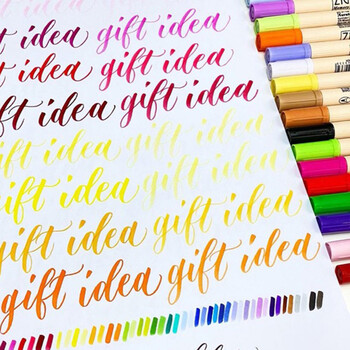 gift idea gift idea
gift idea gift idea
gift idea gift idea
gift idea gift idea
gift idea gift idea
gift idea gift idea
gift idea gift idea
ZIG